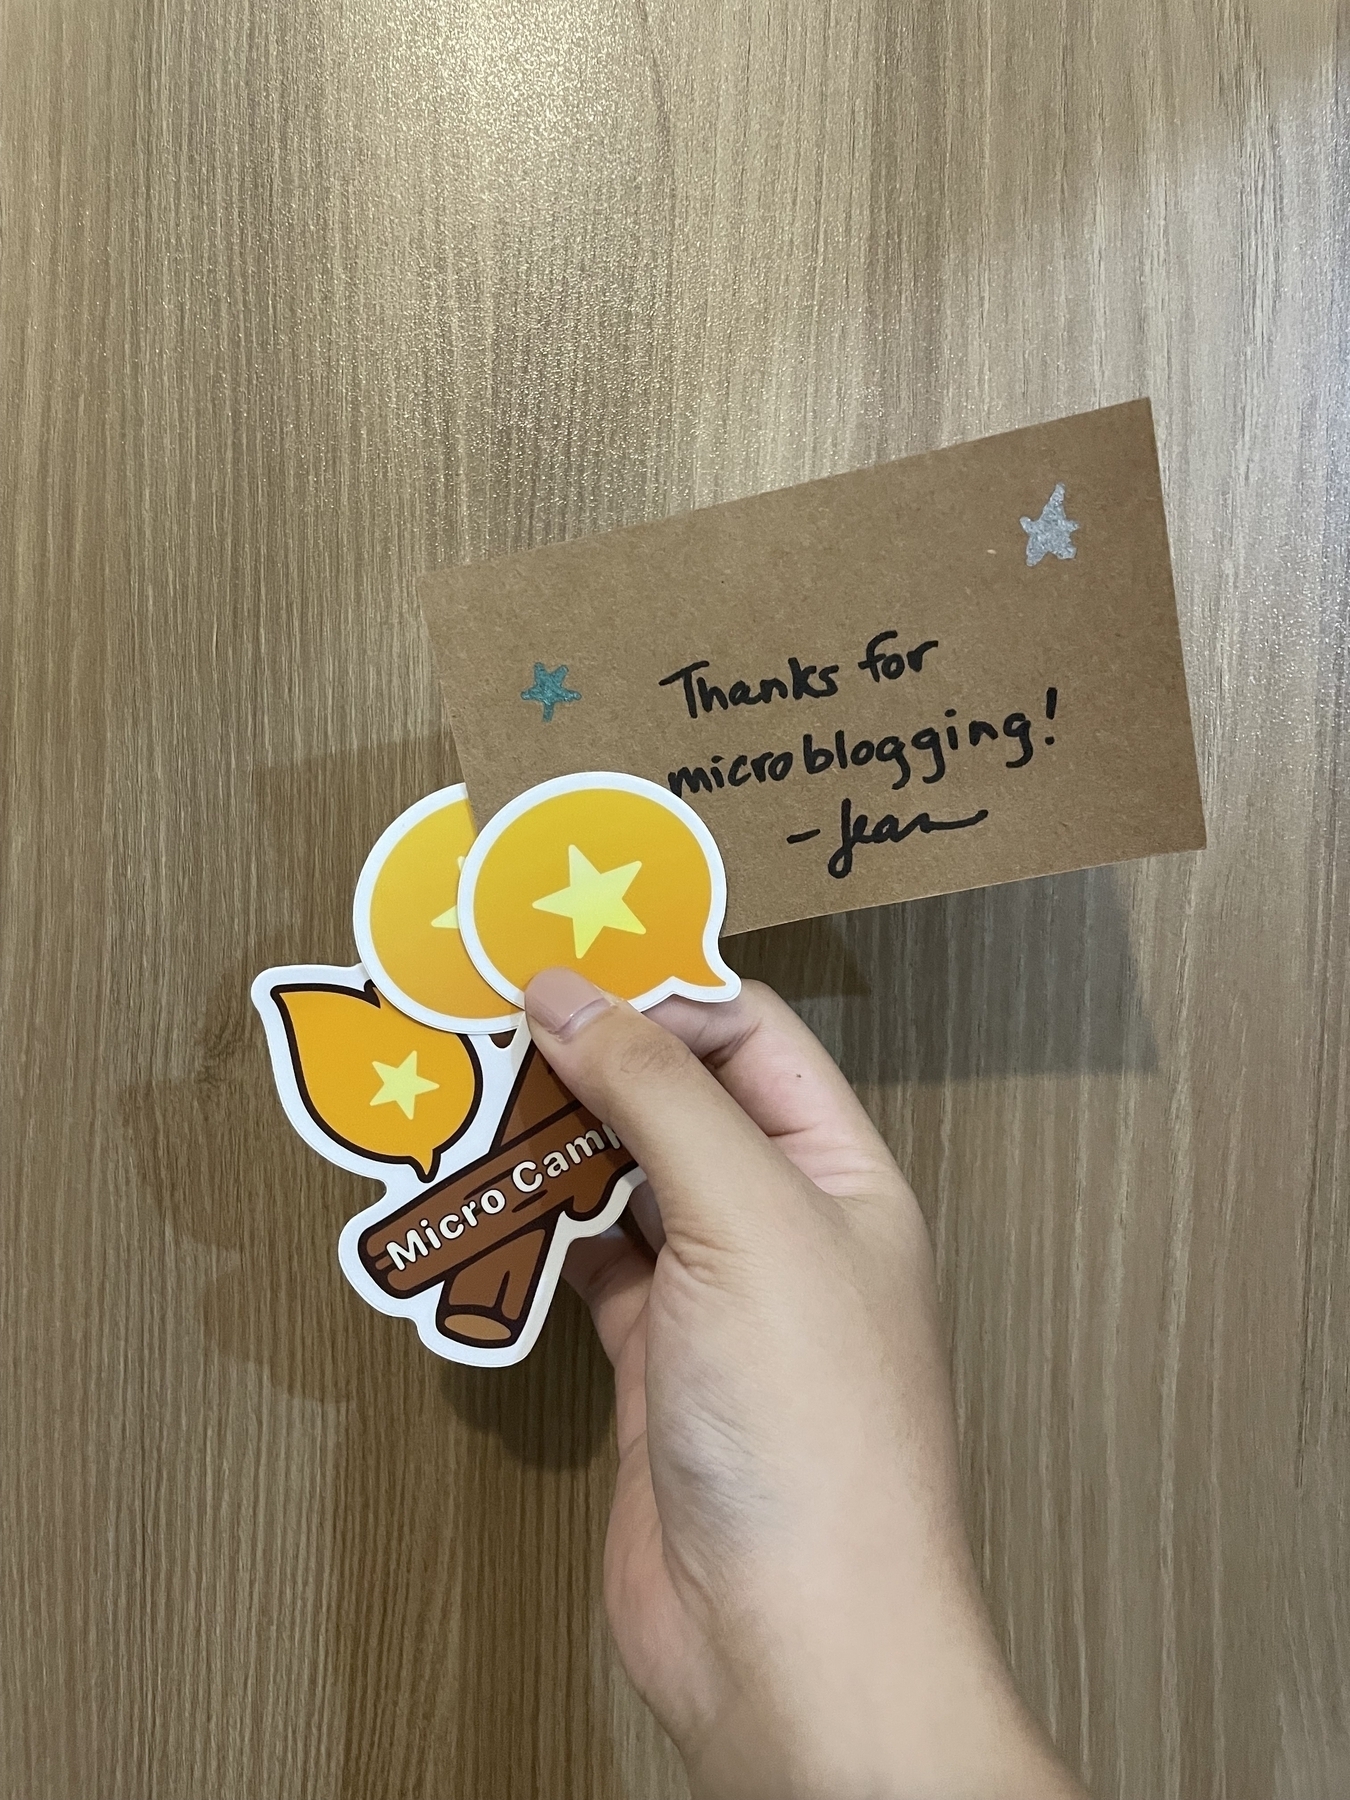 Thanks for
microblogging!
- Jean
Micro Camp